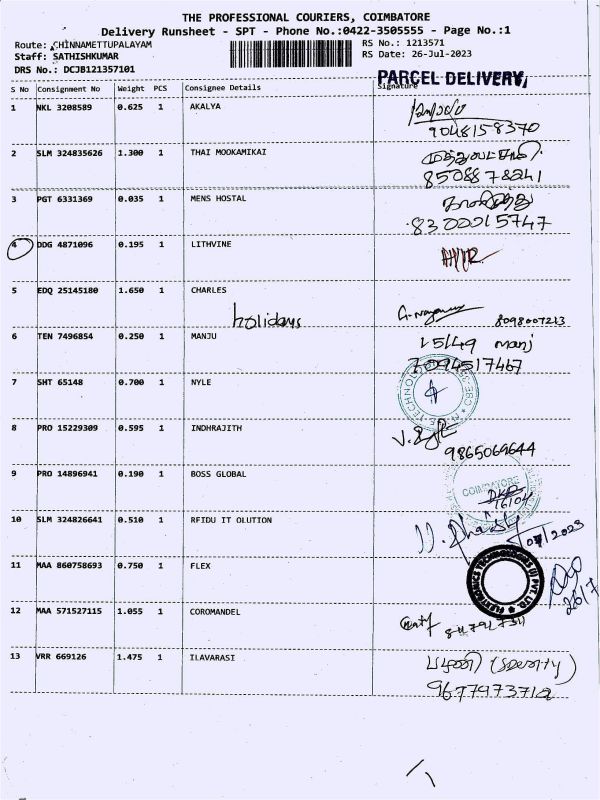 THE PROFESSIONAL COURIERS, COIMBATORE
Delivery Runsheet - SPT - Phone No.:0422-3505555 - Page No.:1
Route: CHINNAMETTUPALAYAM RS No.: 1213571
Staff: SATHISHKUMAR RS Date: 26-Jul-2023
DRS No.: DCJB121357101 PARCEL DELIVERY,
S No Consignment No Weight PCS Consignee Details Signature
1 NKL 3208589 0.625 1 AKALYA
9048158370
2 SLM 324835626 1.300 1 THAI MOOKAMIKAI
8508878241
3 PGT 6331369 0.035 1 MENS HOSTAL
8300015747
4 DDG 4871096 0.195 1 LITHVINE
5 EDQ 25145180 1.650 1 CHARLES
holidays 8098007213
6 TEN 7496854 0.250 1 MANJU
7094517467
7 SHT 65148 0.700 1 NYLE
8 PRO 15229309 0.595 1 INDHRAJITH
9865069644
9 PRO 14896941 0.190 1 BOSS GLOBAL
COIMBATORE
10 SLM 324826641 0.510 1 RFIDU IT OLUTION
11 MAA 860758693 0.750 1 FLEX
26/7
12 MAA 571527115 1.055 1 COROMANDEL
13 VRR 669126 1.475 1 ILAVARASI
பழனி (Security)
9677973712